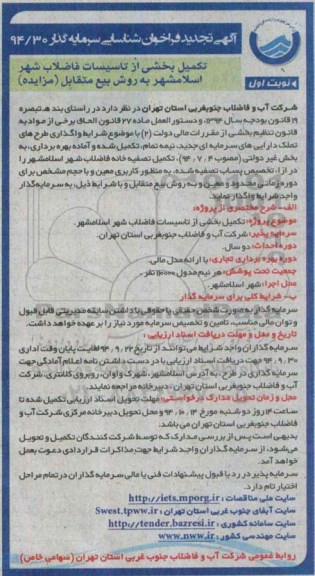 آگهی تجدید فراخوان شناسایی سرمایه گذار ۹۴/۳۰
تکمیل بخشی از تاسیسات فاضلاب شهر
اسلامشهر به روش بیع متقابل (مزایده)
نوبت اول
شرکت آب و فاضلاب جنوبغربی استان تهران در نظر دارد در راستای بند هـ تبصره
۱۹ قانون بودجه سال ۱۳۹۴، و دستور العمل ماده ۲۷ قانون الحاق برخی از مواد به
قانون تنظیم بخشی از مقررات مالی دولت (۲) با موضوع شرایط واگذاری طرح های
تملک دارایی های سرمایه ای جدید، نیمه تمام، تکمیل شده و آماده بهره برداری، به
بخش غیر دولتی (مصوب ۹۴،۷،۴)، تکمیل تصفیه خانه فاضلاب شهر اسلامشهر را
در ازاء تخصیص پساب تصفیه شده، به منظور کاربری معین و با حجم مشخص برای
دوره زمانی محدود و معین و به روش بیع متقابل و با شرایط ذیل، به سرمایه گذار
واجد شرایط واگذار نماید.
الف - شرح مختصری از پروژه:
موضوع پروژه: تکمیل بخشی از تاسیسات فاضلاب شهر اسلامشهر.
سرمایه پذیر: شرکت آب و فاضلاب جنوبغربی استان تهران.
دوره احداث: دو سال.
دوره بهره برداری تجاری: با ارائه مدل مالی.
جمعیت تحت پوشش: هر نیم مدول نفر.
محل اجرا: شهر اسلامشهر.
ب - شرایط کلی برای سرمایه گذار
سرمایه گذار به صورت شخص حقیقی یا حقوقی با داشتن سابقه مدیریتی قابل قبول
و توان مالی مناسب، تامین و تخصیص سرمایه مورد نیاز را بر عهده خواهد داشت.
تاریخ و محل و مهلت دریافت اسناد ارزیابی:
سرمایه گذاران واجد شرایط می توانند از تاریخ ۹۴،۹،۲۲ لغایت پایان وقت اداری
۹۴،۹،۳۰ جهت دریافت اسناد ارزیابی با در دست داشتن نامه اعلام آمادگی جهت
سرمایه گذاری در طرح، به آدرس اسلامشهر، شهرک واوان، روبروی کلانتری، شرکت
آب و فاضلاب جنوب غربی استان تهران - دبیرخانه مراجعه نمایند.
محل و زمان تحویل مدارک درخواستی: مهلت تحویل اسناد ارزیابی تکمیل شده تا
ساعت ۱۴ روز دو شنبه مورخ ۹۴،۱۰،۱۴ و محل تحویل دبیرخانه مرکزی شرکت آب و
فاضلاب جنوب غربی استان تهران می باشد.
بدیهی است پس از بررسی مدارک که توسط شرکت کنندگان تکمیل و تحویل
می شود، از سرمایه گذاران واجد شرایط جهت مذاکرات قراردادی دعوت بعمل
خواهد آمد.
سرمایه پذیر در رد یا قبول پیشنهادات فنی یا مالی سرمایه گذاران در تمام مراحل
اختیار تام دارد.
سایت ملی مناقصات : http://iets.mporg.ir
سایت آبفای جنوب غربی استان تهران : Swest.tpww.ir
سایت سامانه کشوری : http://tender.bazresi.ir
سایت مهندسی کشور : www.nww.ir
روابط عمومی شرکت آب و فاضلاب جنوب غربی استان تهران (سهامی خاص)